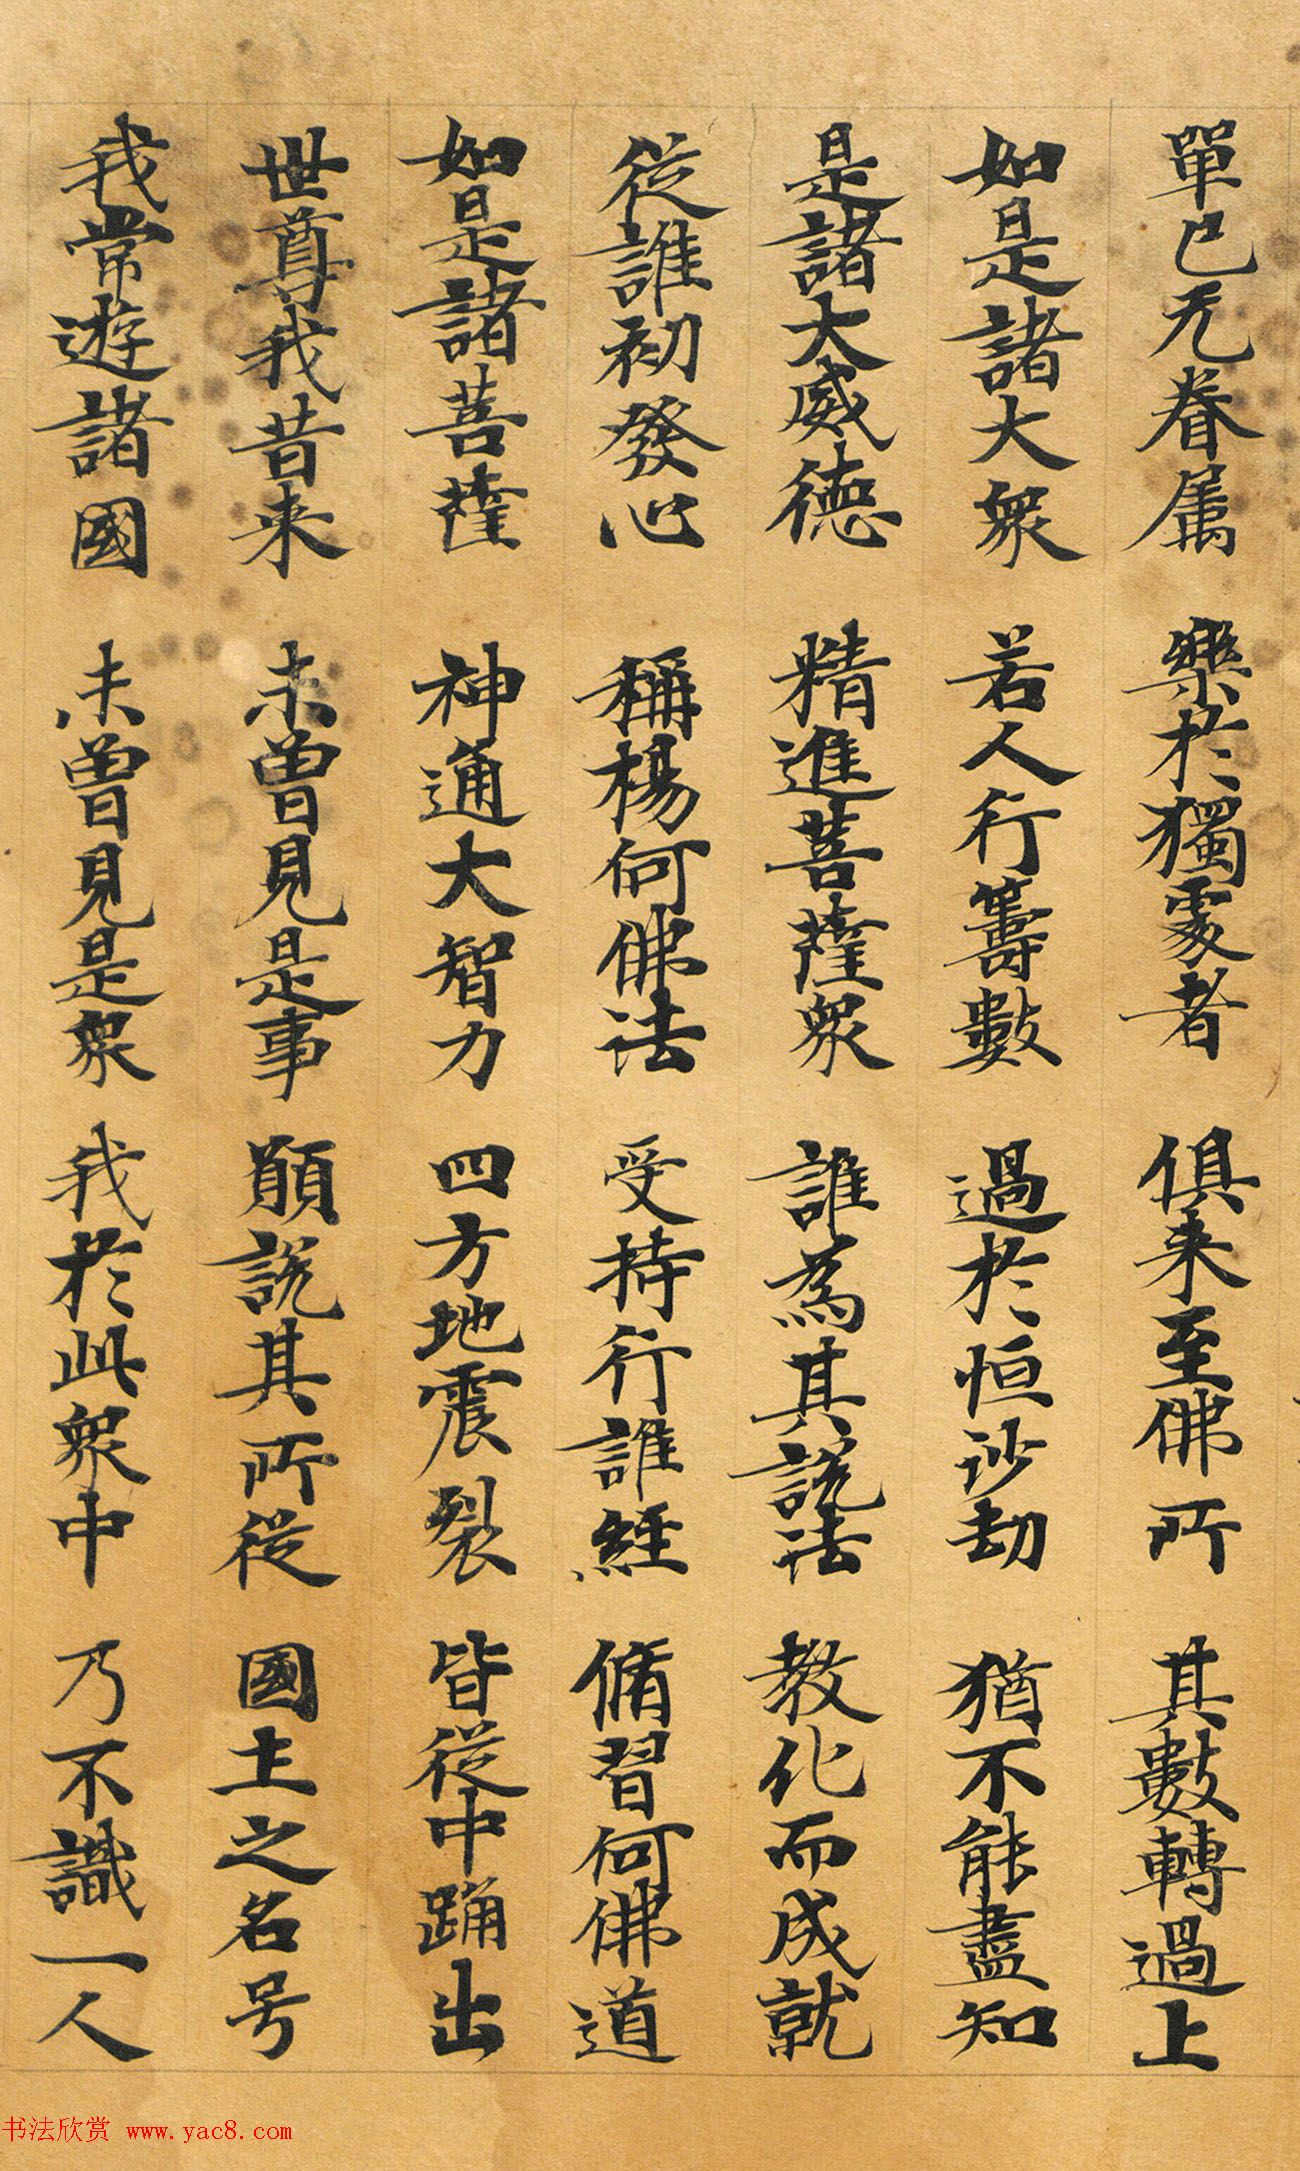 單己无眷属 樂於獨處者 俱来至佛所 其數轉過上
如是諸大衆 若人行籌數 過於恒沙劫 猶不能盡知
是諸大威德 精進菩薩衆 誰為其說法 教化而成就
從誰初發心 稱楊何佛法 受持行誰經 脩習何佛道
如是諸菩薩 神通大智力 四方地震裂 皆從中踊出
世尊我昔来 未曾見是事 願說其所從 國土之名号
我常遊諸國 未曾見是衆 我於此衆中 乃不識一人
书法欣赏 www.yac8.com